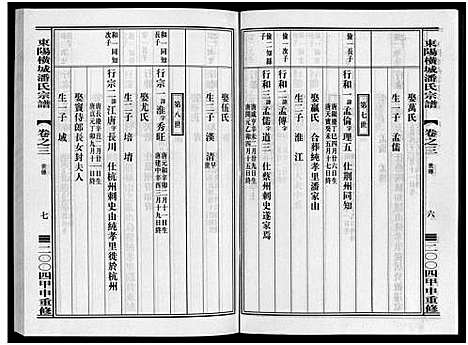 東陽橫城潘氏宗譜
卷之三
世傳
六
二〇〇四甲申重修
娶萬氏
生一子 孟儒
第七世
儉一知縣長子
行和一 諱孟倫 字理五 仕荆州同知
娶嬴氏 合葬純孝里潘家山
生二子 淮 江
儉二知縣子
行和二 諱孟傳 字
行和三 諱孟儒 字道三 仕蔡州刺史遂家焉
娶伍氏
生二子 漢 清
第八世
和一同知長子
行宗一 諱淮 字秀旺
娶尤氏
生二子 培 堉
和一同知次子
行宗二 諱江 字長川 仕杭州刺史由純孝里徙於杭州
娶竇侍郎長女封夫人
生一子 城
東陽橫城潘氏宗譜
卷之三
世傳
七
二〇〇四甲申重修